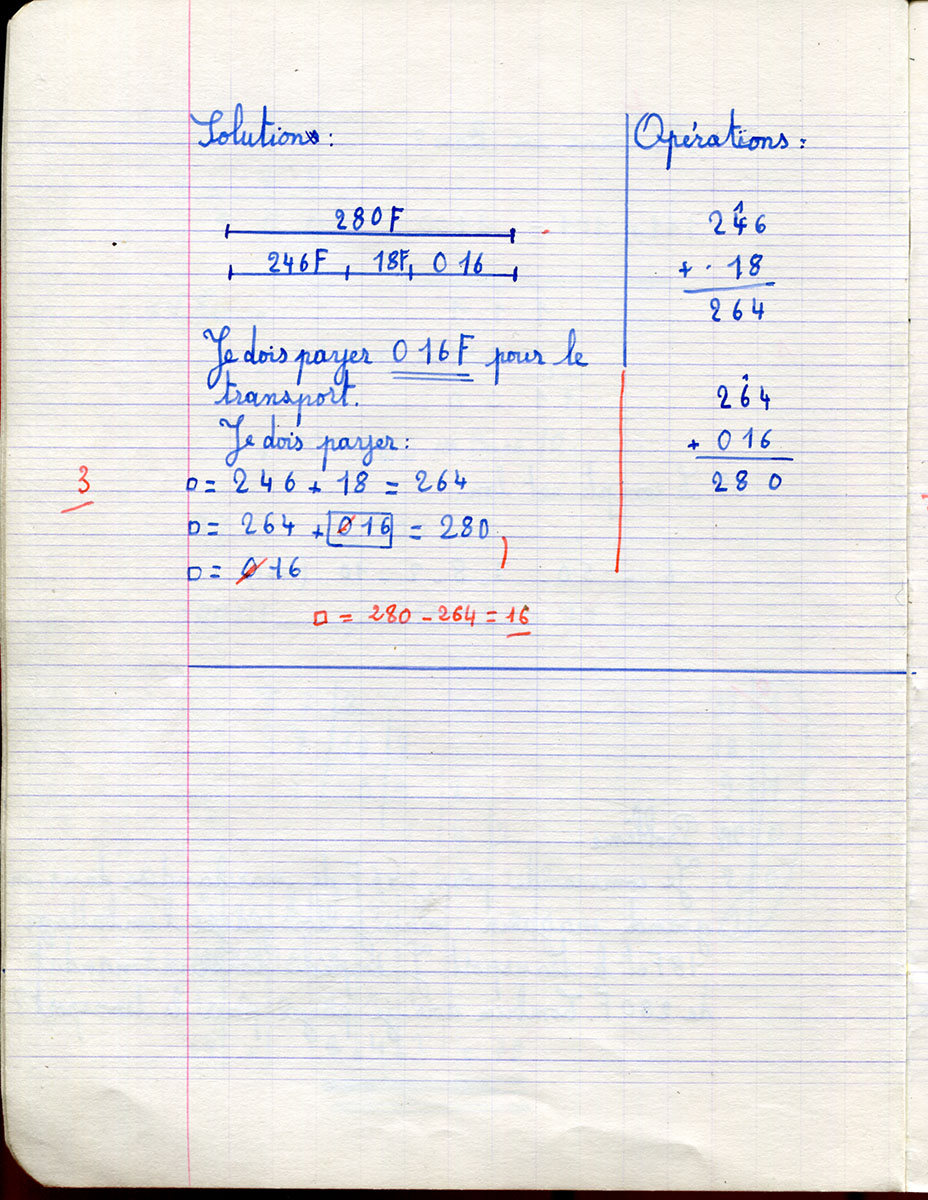 Solution :
280F
246F 18F 0 16
Je dois payer 0 16 F pour le
transport.
Je dois payer :
□ = 246 + 18 = 264
3
□ = 264 + 016 = 280
□ = 016
□ = 280 - 264 = 16
Opérations :
1
246
+ . 18
264
1
264
+ 016
280